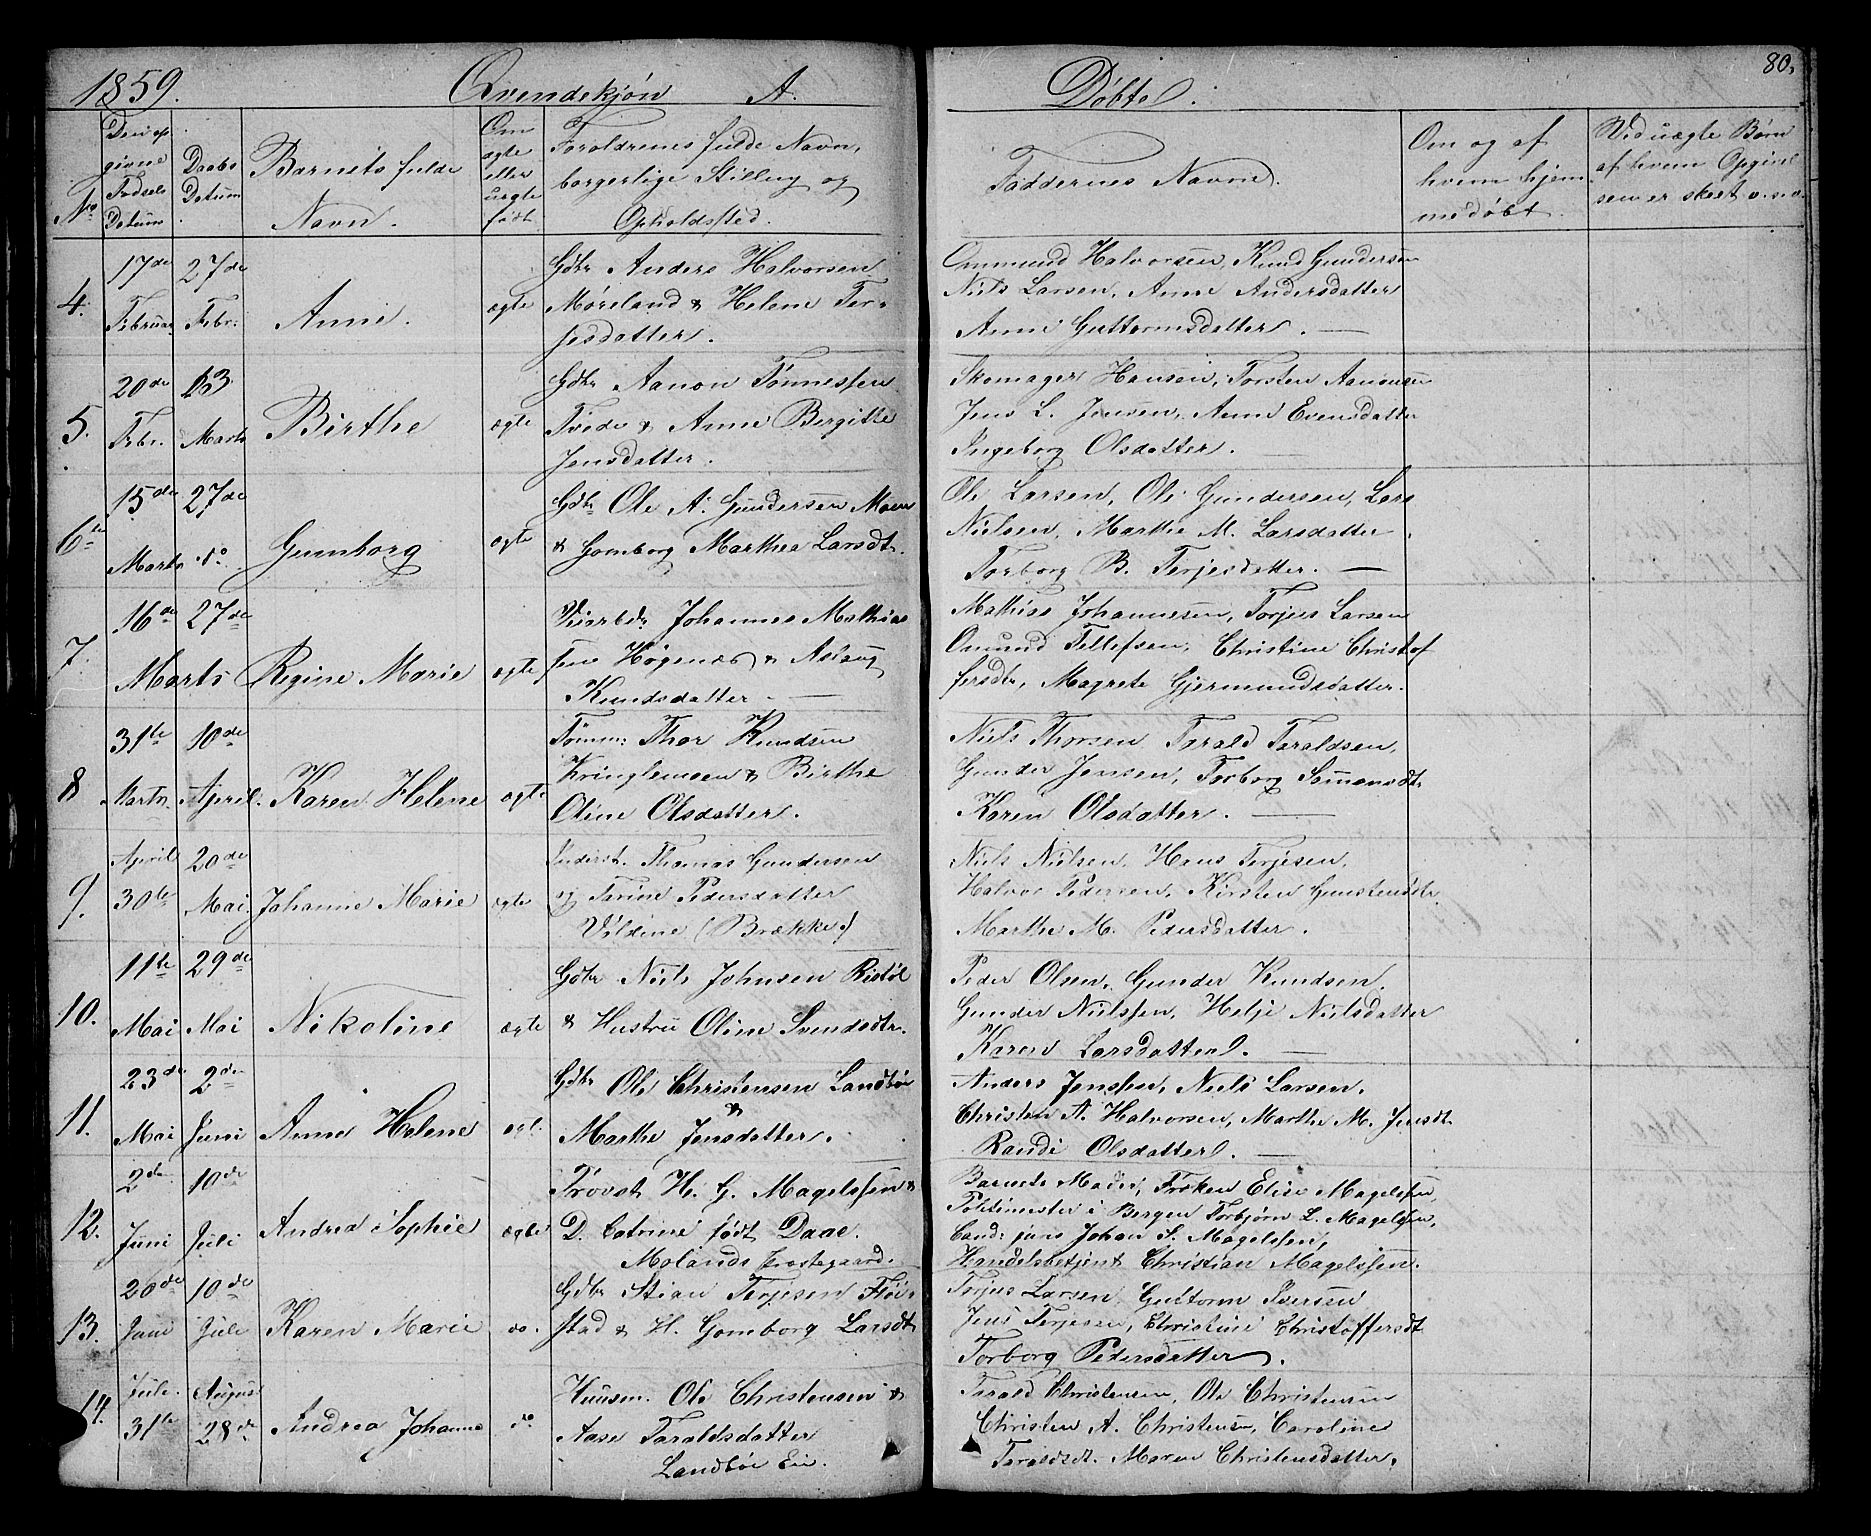 1859. Qvindekjøn A. Døbte. 80.
No
Den op
givne
Fødsels
Datum
Daabs
Datum
Barnets fulde
Navn.
Om
ægte
eller
uægte
født
Forældrenes fulde Navn,
borgerlige Stilling og
Opholdssted.
Faddernes Navne.
Om og af
hvem hjem
medøbt.
Ved uægte Børn
af hvem Opgivel
sen er skeet o.s.v.
4.
17de
Februar
27de
Febr.
Anne.
ægte
Gdbr Anders Halvorsen
Møreland & Helene Ter-
jesdatter.
Ommund Halvorsen, Knud Gundersen
Niels Larsen, Anne Andersdatter
Anne Guttormsdatter. —
5.
20de
Febr.
13
Marts
Birthe
ægte
Gdbr Aanon Tønnessen
Tvede & Anne Bergitte
Jensdatter.
Skomager Hansen, Torsten Aanonsen
Jens L. Jensen, Anne Evensdatter
Ingeborg Olsdatter.
6te
15de
Marts
27de
do
Gunborg
ægte
Gdbr Ole A. Gundersen Moen
& Gomborg Marthea Larsdtr.
Ole Larsen, Ole Gundersen, Lars
Nielsen, Marthe M. Larsdatter
Torborg B. Terjesdatter. —
7.
16de
27de
Marts
Regine Marie
ægte
Veiarbdr Johannes Mathias
sen Høgenæs & Aslaug
Knudsdatter. —
Mathias Johannesen, Torjus Larsen
Omund Tellefsen, Christine Christof
fersdtr, Magrete Gjermundsdatter.
8
31te
Marts
10de
April.
Karen Helene
ægte
Tømm: Thor Knudsen
Kringlemoen & Birthe
Oline Olsdatter.
Niels Thorsen Tarald Taraldsen,
Gunder Jensen, Torborg Samuelsdt.
Karen Olsdatter. —
9.
April
30te
20de
Mai.
Johanne Marie
ægte
Inderst. Thomas Gundersen
og Tarine Pedersdatter
Vildine (Brække)
Niels Nielsen, Hans Terjesen,
Halvor Pedersen, Kirsten Gunstensdtr.
Marthe M. Pedersdatter.
10.
11te
Mai
29de
Mai
Nikoline
ægte
Gdbr Niels Johnsen Ristøl
& Hustru Oline Svendsdtr.
Peder Olsen, Gunder Knudsen,
Gunder Nielssen, Helje Nielsdatter
Karen Larsdatter. —
11.
23de
Mai
2den
Juni
Anne Helene
ægt.
Gdbr Ole Christensen Landbøe
&
Marthe Jensdatter.
Anders Jenssen, Niels Larsen,
Christen A. Halvorsen, Marthe M. Jensdt.
Randi Olsdatter. —
12.
2de
Juni
10de
Juli
Andrea Sophie
ægte
Provst H. G. Magelssen &
D. Catrine født Daae.
Molands Prostegaard.
Barnets Moder, Frøken Elise Magelssen,
Politimester i Bergen Torbjørn L. Magelssen,
Cand: juris Johan S. Magelssen,
Handelsbetjent Christian Magelssen.
13.
20de
Juni
10de
Juli
Karen Marie
do.
Gdbr Stian Terjesen Fløi-
stad & H. Gomborg Larsdt
Torjus Larsen, Guttorm Iversen
Jens Terjesen, Christine Christoffersdt
Torborg Pedersdatter.
14.
Juli.
31te
August
28de
Andrea Johanne
do
Huusm. Ole Christensen &
Aase Taraldsdatter
Landbøe Eie.
Tarald Christensen, Ole Christensen
Christen A. Christensen, Caroline
Taraldsdt. Maren Christensdatter.